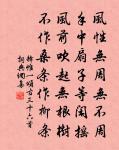 風性無周無不周
手中扇子等閒搖
風前吹起無根樹
不作桑條作柳條
釋惟一頌古三十六首
詞典網集